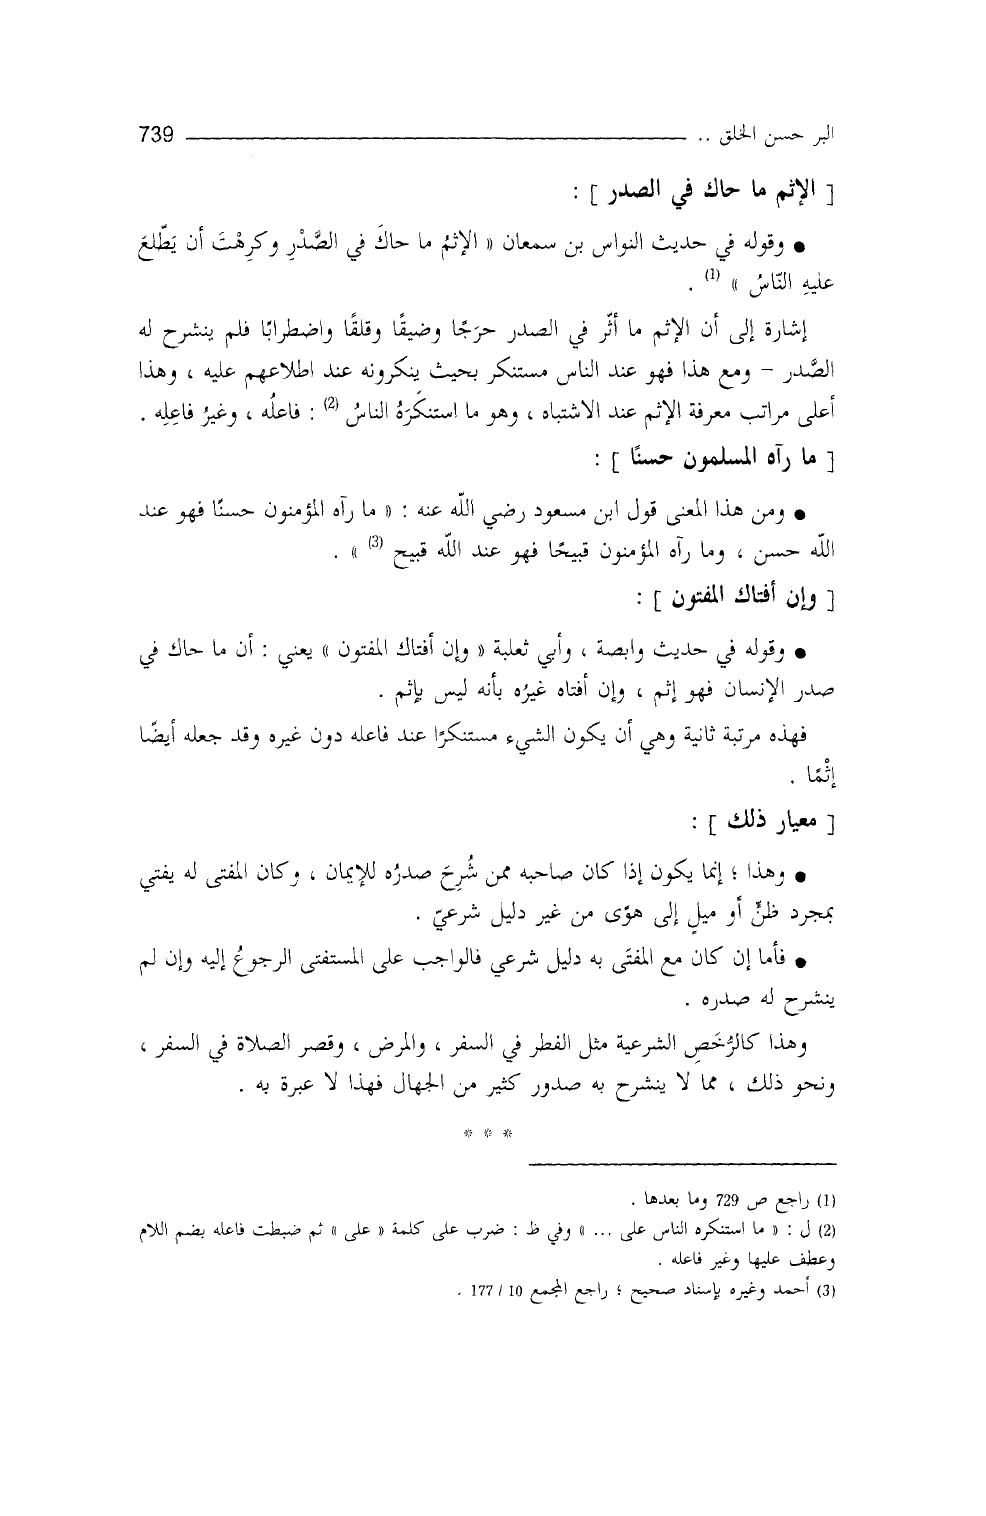 البر حسن الخلق .. 739
[ الإثم ما حاك في الصدر ] :
● وقوله في حديث النواس بن سمعان « الإثمُ ما حاكَ في الصَّدْرِ وكرِهْتَ أن يَطَّلعَ
عليهِ النَّاسُ » (1) .
إشارة إلى أن الإثم ما أثّر في الصدر حرَجًا وضيقًا وقلقًا واضطرابًا فلم ينشرح له
الصَّدر – ومع هذا فهو عند الناس مستنكر بحيث ينكرونه عند اطلاعهم عليه ، وهذا
أعلى مراتب معرفة الإثم عند الاشتباه ، وهو ما استنكَرَهُ الناسُ (2) : فاعلُه ، وغيرُ فاعِلِه .
[ ما رآه المسلمون حسنًا ] :
● ومن هذا المعنى قول ابن مسعود رضي اللّه عنه : « ما رآه المؤمنون حسنًا فهو عند
اللّه حسن ، وما رآه المؤمنون قبيحًا فهو عند اللّه قبيح (3) » .
[ وإن أفتاك المفتون ] :
● وقوله في حديث وابصة ، وأبي ثعلبة « وإن أفتاك المفتون » يعني : أن ما حاك في
صدر الإنسان فهو إثم ، وإن أفتاه غيرُه بأنه ليس بإثم .
فهذه مرتبة ثانية وهي أن يكون الشيء مستنكرًا عند فاعله دون غيره وقد جعله أيضًا
إثْمًا .
[ معيار ذلك ] :
● وهذا ؛ إنما يكون إذا كان صاحبه ممن شُرِحَ صدرُه للإيمان ، وكان المفتى له يفتي
بمجرد ظنٍّ أو ميلٍ إلى هوًى من غير دليل شرعيّ .
● فأما إن كان مع المفتَى به دليل شرعي فالواجب على المستفتى الرجوعُ إليه وإن لم
ينشرح له صدره .
وهذا كالرُّخَصِ الشرعية مثل الفطر في السفر ، والمرض ، وقصر الصلاة في السفر ،
ونحو ذلك ، مما لا ينشرح به صدور كثير من الجهال فهذا لا عبرة به .
* * *
(1) راجع ص 729 وما بعدها .
(2) ل : « ما استنكره الناس على ... » وفي ظ : ضرب على كلمة « على » ثم ضبطت فاعله بضم اللام
وعطف عليها وغير فاعله .
(3) أحمد وغيره بإسناد صحيح ؛ راجع المجمع 10 / 177 .